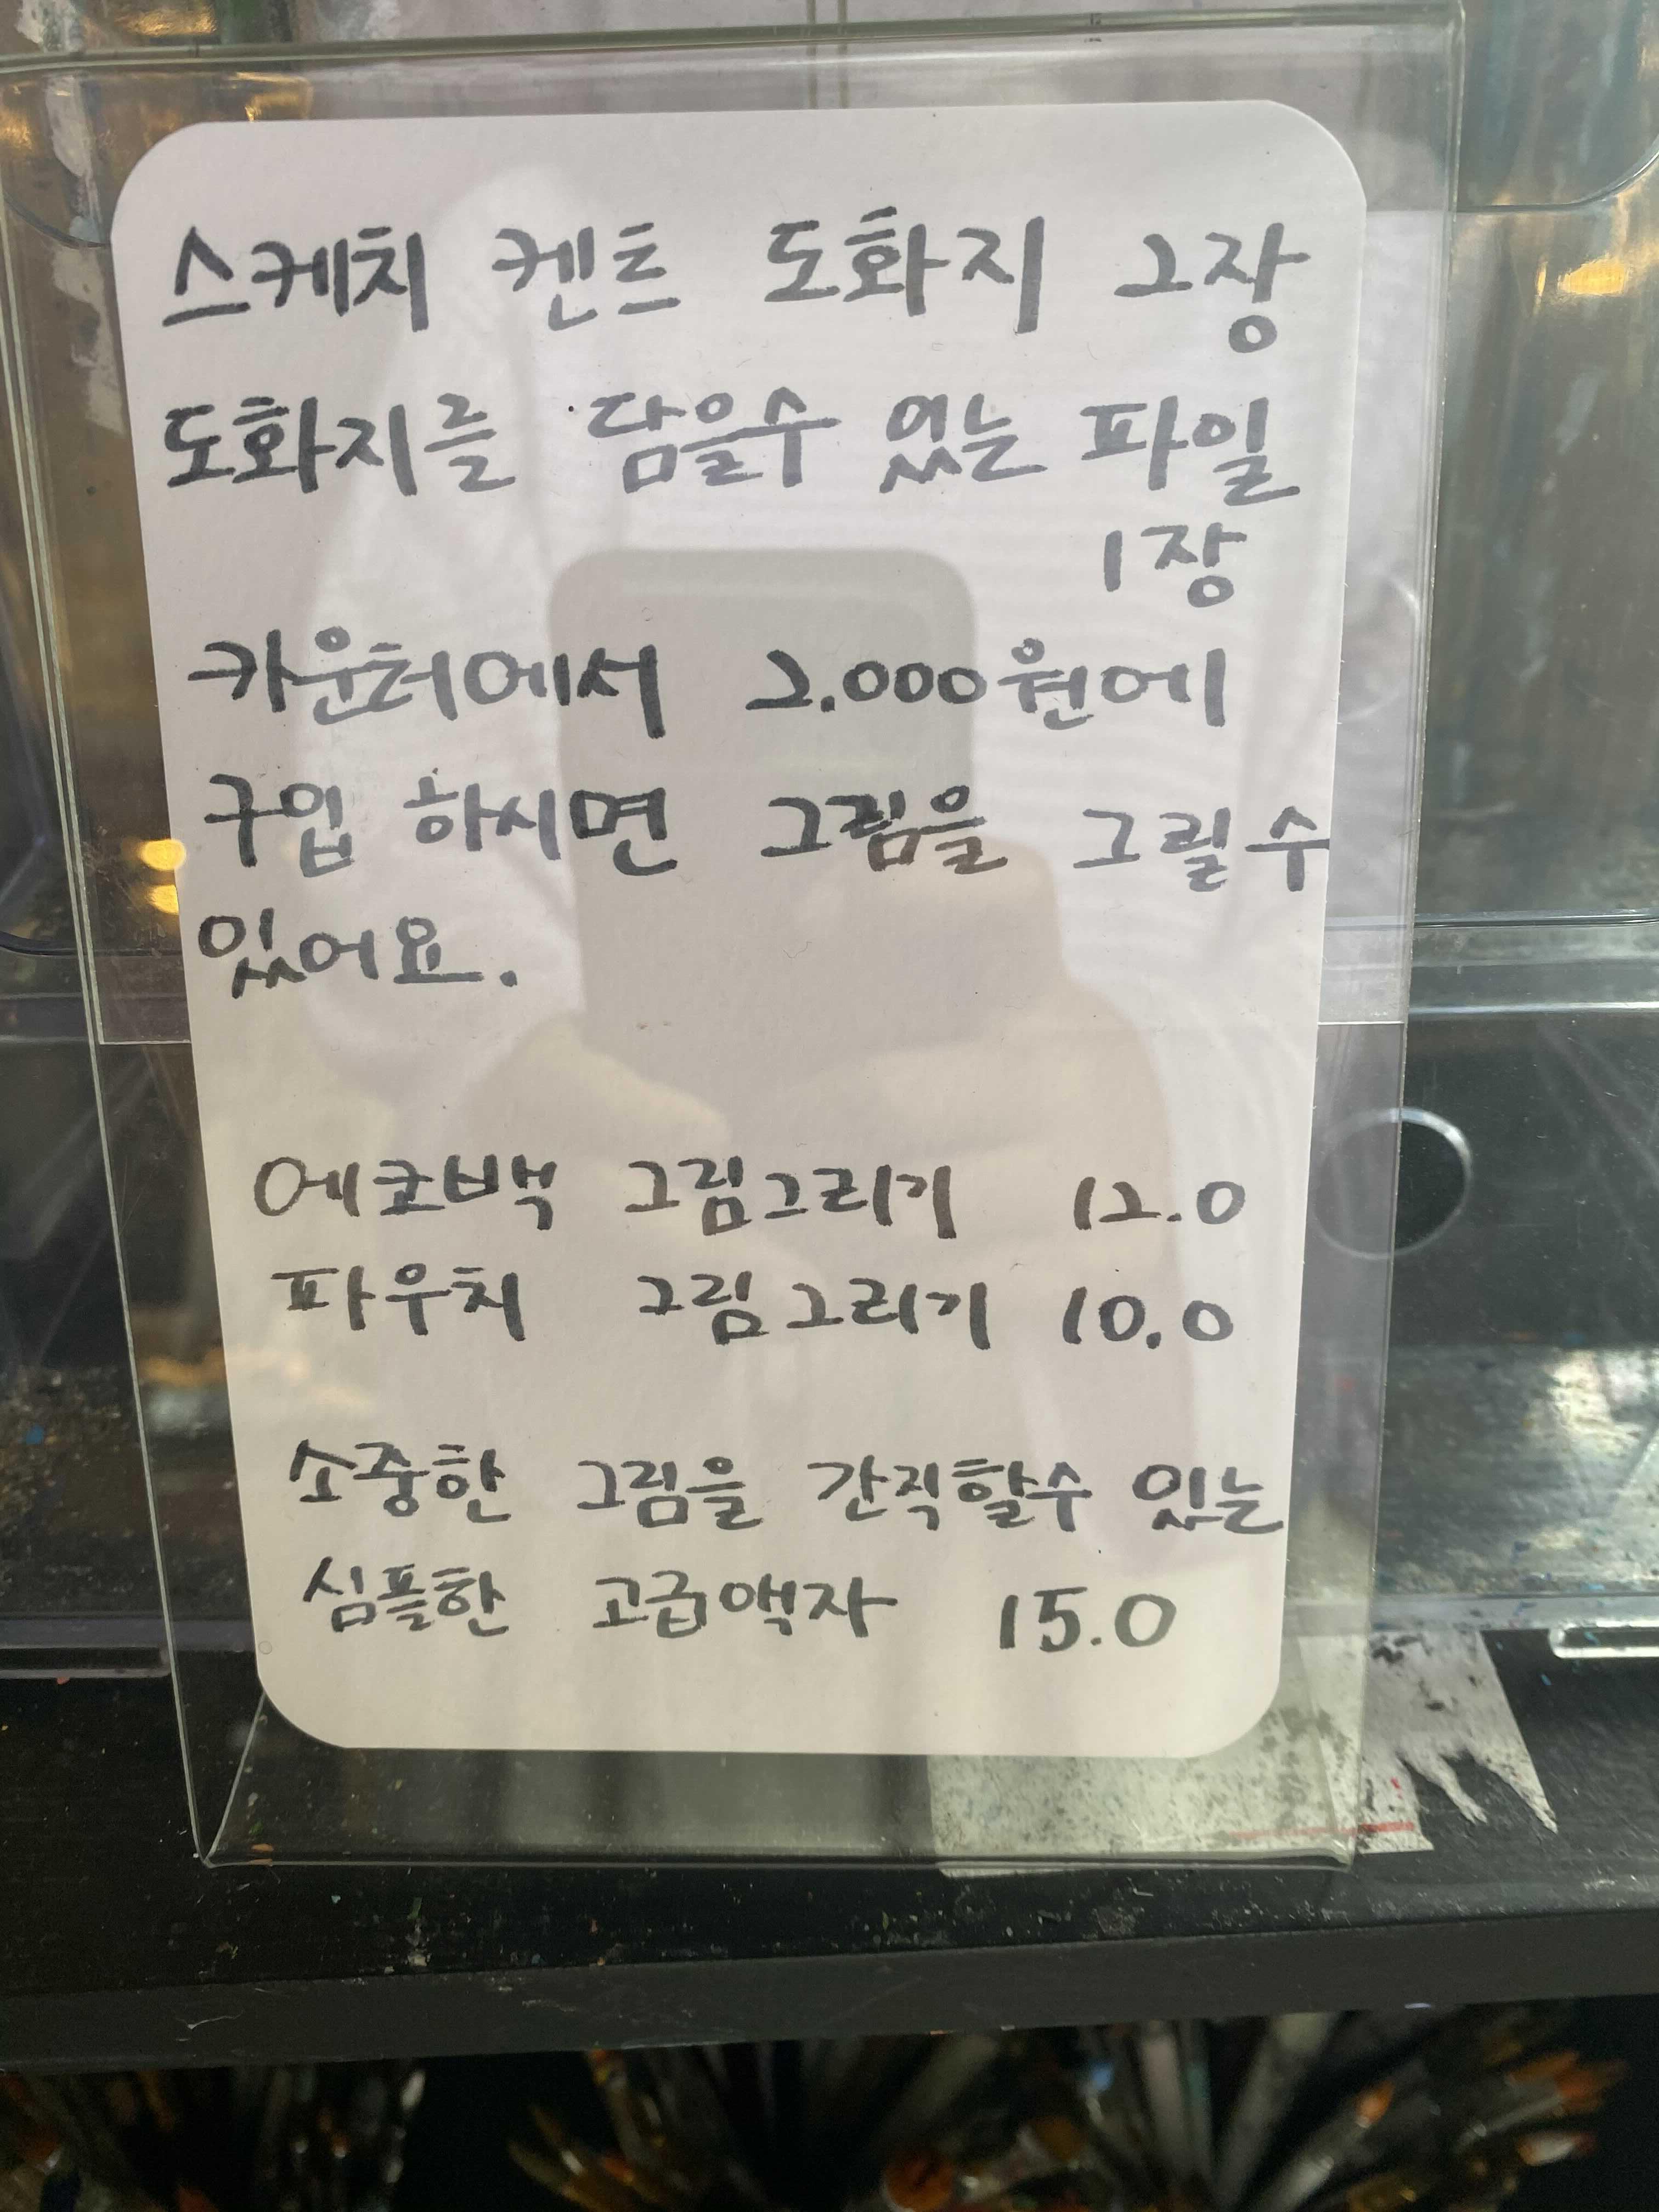 스케치 켄트 도화지 2장
도화지를 담을수 있는 파일
1장
카운터에서 2.000원에
구입 하시면 그림을 그릴수
있어요.
에코백 그림그리기 12.0
파우치 그림그리기 10.0
소중한 그림을 간직할수 있는
심플한 고급액자 15.0